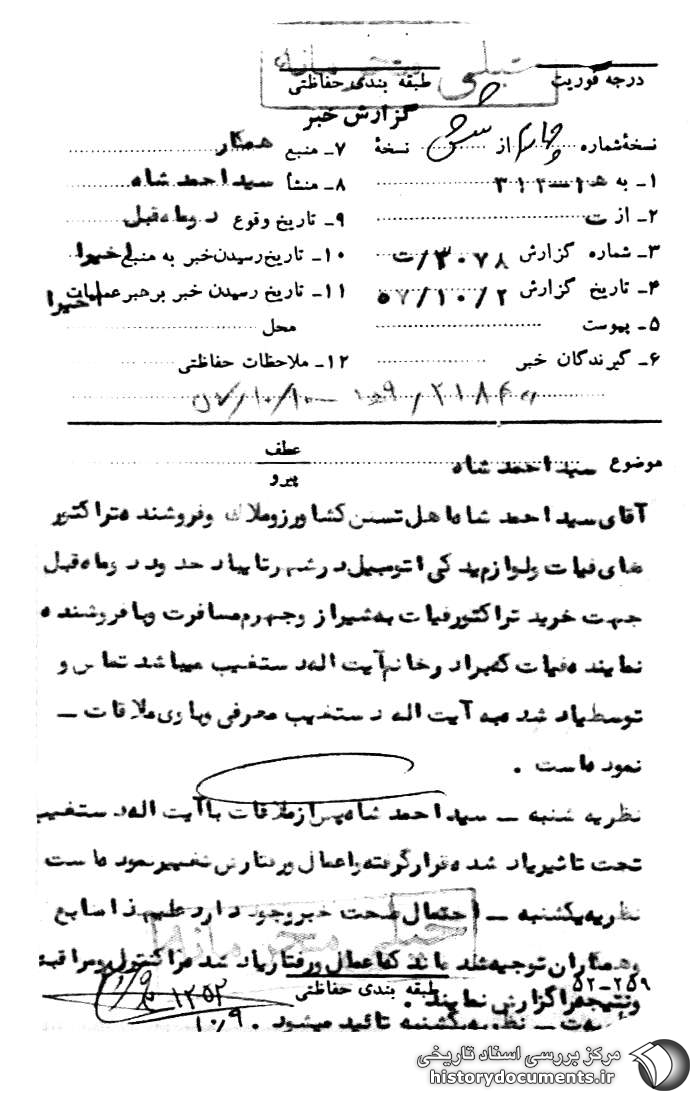 خیلی محرمانه
درجه فوریت طبقه بندی حفاظتی
گزارش خبر
نسخهٔ شماره چهارم از شش نسخهٔ
۷ـ منبع همکار
۱ـ به ۳۱۲-۱ه
۸ـ منشأ سید احمد شاه
۲ـ از ت
۹ـ تاریخ وقوع دو ماه قبل
۳ـ شماره گزارش ۳۰۷۸/ت
۱۰ـ تاریخ رسیدن خبر به منبع اخیرا
۴ـ تاریخ گزارش ۵۷/۱۰/۲
۱۱ـ تاریخ رسیدن خبر برهبر عملیات اخیرا
۵ـ پیوست
محل
۶ـ گیرندگان خبر
۱۲ـ ملاحظات حفاظتی
موضوع سید احمد شاه
عطف
پیرو
آقای سید احمد شاه اهل تسنن کشاورز و ملاک و فروشنده تراکتور
های فیات و لوازم یدکی اتومبیل در شهر تایباد حدود دو ماه قبل
جهت خرید تراکتور فیات به شیراز و جهرم مسافرت و با فروشنده
نماینده فیات که برادر خانم آیت اله دستغیب میباشد تماس و
توسط یاد شده به آیت اله دستغیب معرفی و با وی ملاقات ـ
نموده است .
نظریه شنبه ـ سید احمد شاه پس از ملاقات با آیت اله دستغیب
تحت تاثیر یاد شده قرار گرفته و اعمال و رفتارش تغییر نموده است
نظریه یکشنبه ـ احتمال صحت خبر وجود دارد علیهذا منابع
و همکاران توجیه شده اند که اعمال و رفتار یاد شده را کنترل و مراقبت
و نتیجه را گزارش نمایند .
خیلی محرمانه
طبقه بندی حفاظتی
۵۲-۲۵۹
ـ نظریه یکشنبه تائید میشود .
۱۲۵۲
۱۰/۹
مرکز بررسی اسناد تاریخی
historydocuments.ir